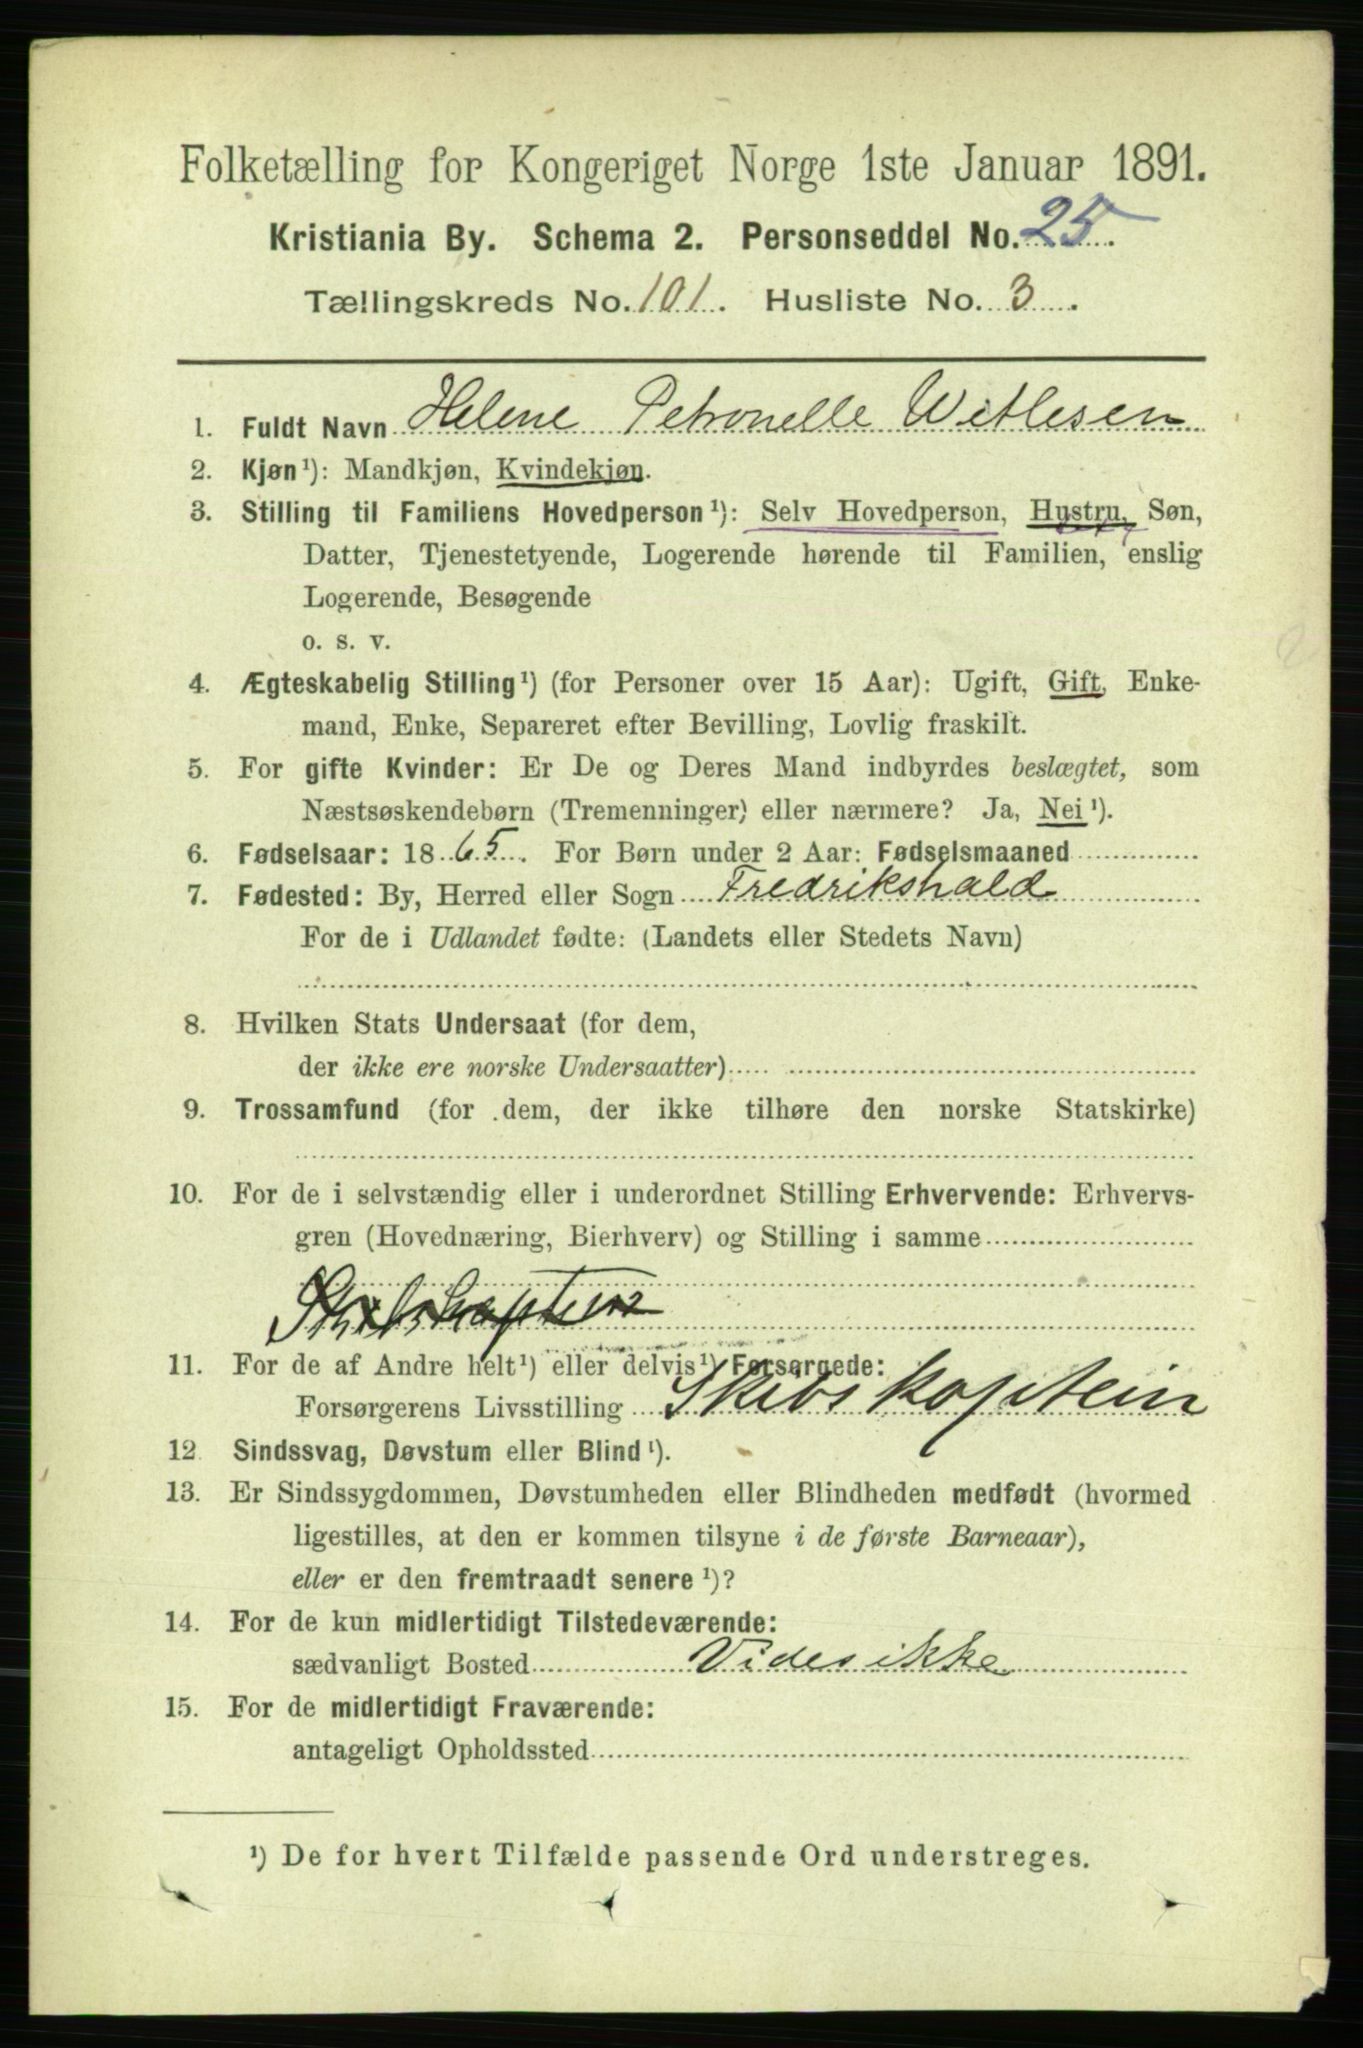 Folketælling for Kongeriget Norge 1ste Januar 1891.
Kristiania By. Schema 2. Personseddel No. 25.
Tællingskreds No. 101. Husliste No. 3.
1. Fuldt Navn Helene Petronelle Witlesen
2. Kjøn¹): Mandkjøn, Kvindekjøn.
3. Stilling til Familiens Hovedperson¹): Selv Hovedperson, Hustru, Søn,
Datter, Tjenestetyende, Logerende hørende til Familien, enslig
Logerende, Besøgende
o. s. v.
4. Ægteskabelig Stilling¹) (for Personer over 15 Aar): Ugift, Gift, Enke-
mand, Enke, Separeret efter Bevilling, Lovlig fraskilt.
5. For gifte Kvinder: Er De og Deres Mand indbyrdes beslægtet, som
Næstsøskendebørn (Tremenninger) eller nærmere? Ja, Nei¹).
6. Fødselsaar: 1865. For Børn under 2 Aar: Fødselsmaaned
7. Fødested: By, Herred eller Sogn Fredrikshald
For de i Udlandet fødte: (Landets eller Stedets Navn)
8. Hvilken Stats Undersaat (for dem,
der ikke ere norske Undersaatter)
9. Trossamfund (for dem, der ikke tilhøre den norske Statskirke)
10. For de i selvstændig eller i underordnet Stilling Erhvervende: Erhvervs-
gren (Hovednæring, Bierhverv) og Stilling i samme
Skibskaptein
11. For de af Andre helt¹) eller delvis¹) Forsørgede:
Forsørgerens Livsstilling Skibskaptein
12. Sindssvag, Døvstum eller Blind¹).
13. Er Sindssygdommen, Døvstumheden eller Blindheden medfødt (hvormed
ligestilles, at den er kommen tilsyne i de første Barneaar),
eller er den fremtraadt senere¹)?
14. For de kun midlertidigt Tilstedeværende:
sædvanligt Bosted Vides ikke
15. For de midlertidigt Fraværende:
antageligt Opholdssted
¹) De for hvert Tilfælde passende Ord understreges.